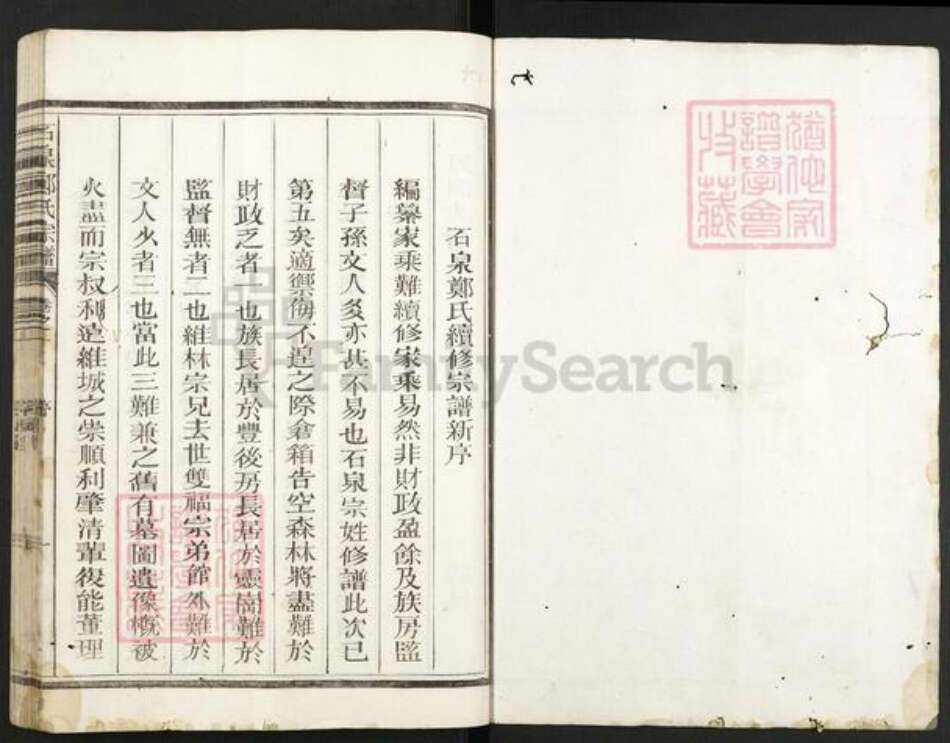 九
猶他家
譜學會
收藏
石泉鄭氏續修宗譜新序
編纂家乘難續修家乘易然非財政盈餘及族房監
督子孫文人多亦甚不易也石泉宗姓修譜此次已
第五矣適禦侮不遑之際倉箱告空森林將盡難於
財政乏者一也族長居於豐後房長居於靈崗難於
監督無者二也維林宗兄去世雙福宗弟館外難於
文人少者三也當此三難兼之舊有墓圖遺像概被
火盡而宗叔利遠維城之崇順利肇清輩復能董理
石泉鄭氏宗譜
FamilySearch